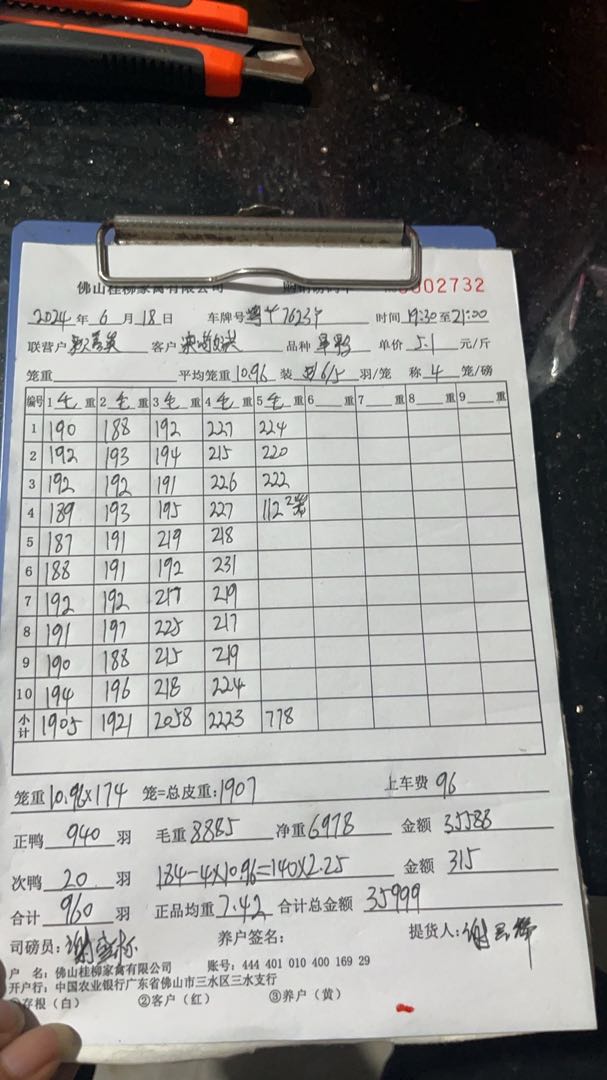 佛山桂柳家禽有限公司 002732
2024 年 6 月 18 日 车牌号 时间 19:30 至 21:00
联营户 客户 品种 单价 5.1 元/斤
笼重 平均笼重 10.96 装 6/5 羽/笼 称 4 笼/磅
编号 1 毛 重 2 毛 重 3 毛 重 4 毛 重 5 毛 重 6 重 7 重 8 重 9 重
1 190 188 192 227 224
2 192 193 194 215 220
3 192 192 191 226 222
4 189 193 195 227 112 2笼
5 187 191 219 218
6 188 191 192 231
7 192 192 217 219
8 191 197 225 217
9 190 188 215 219
10 194 196 218 224
小计 1905 1921 2058 2223 778
笼重 10.96×174 笼=总皮重: 1907 上车费 96
正鸭 940 羽 毛重 8885 净重 6978 金额 35588
次鸭 20 羽 184-4×10.96=140×2.25 金额 315
合计 960 羽 正品均重 7.42 合计总金额 35999
司磅员: 养户签名: 提货人:
户 名: 佛山桂柳家禽有限公司 账号: 444 401 010 400 169 29
开户行: 中国农业银行广东省佛山市三水区三水支行
①存根（白） ②客户（红） ③养户（黄）